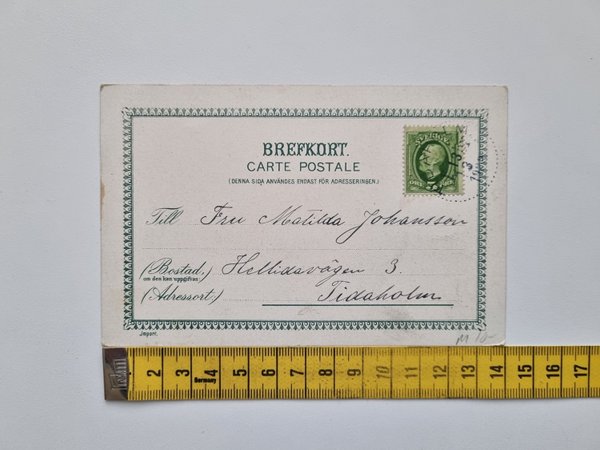 BREFKORT.
CARTE POSTALE
(DENNA SIDA ANVÄNDES ENDAST FÖR ADRESSERINGEN.)
SVERIGE
Till Fru Matilda Johansson
(Bostad.) Hellidsvägen 3.
om den kan uppgifvas
(Adressort:) Tidaholm
Import.
2 3 4 5 6 7 8 9 10 11 12 13 14 15 16 17
Germany